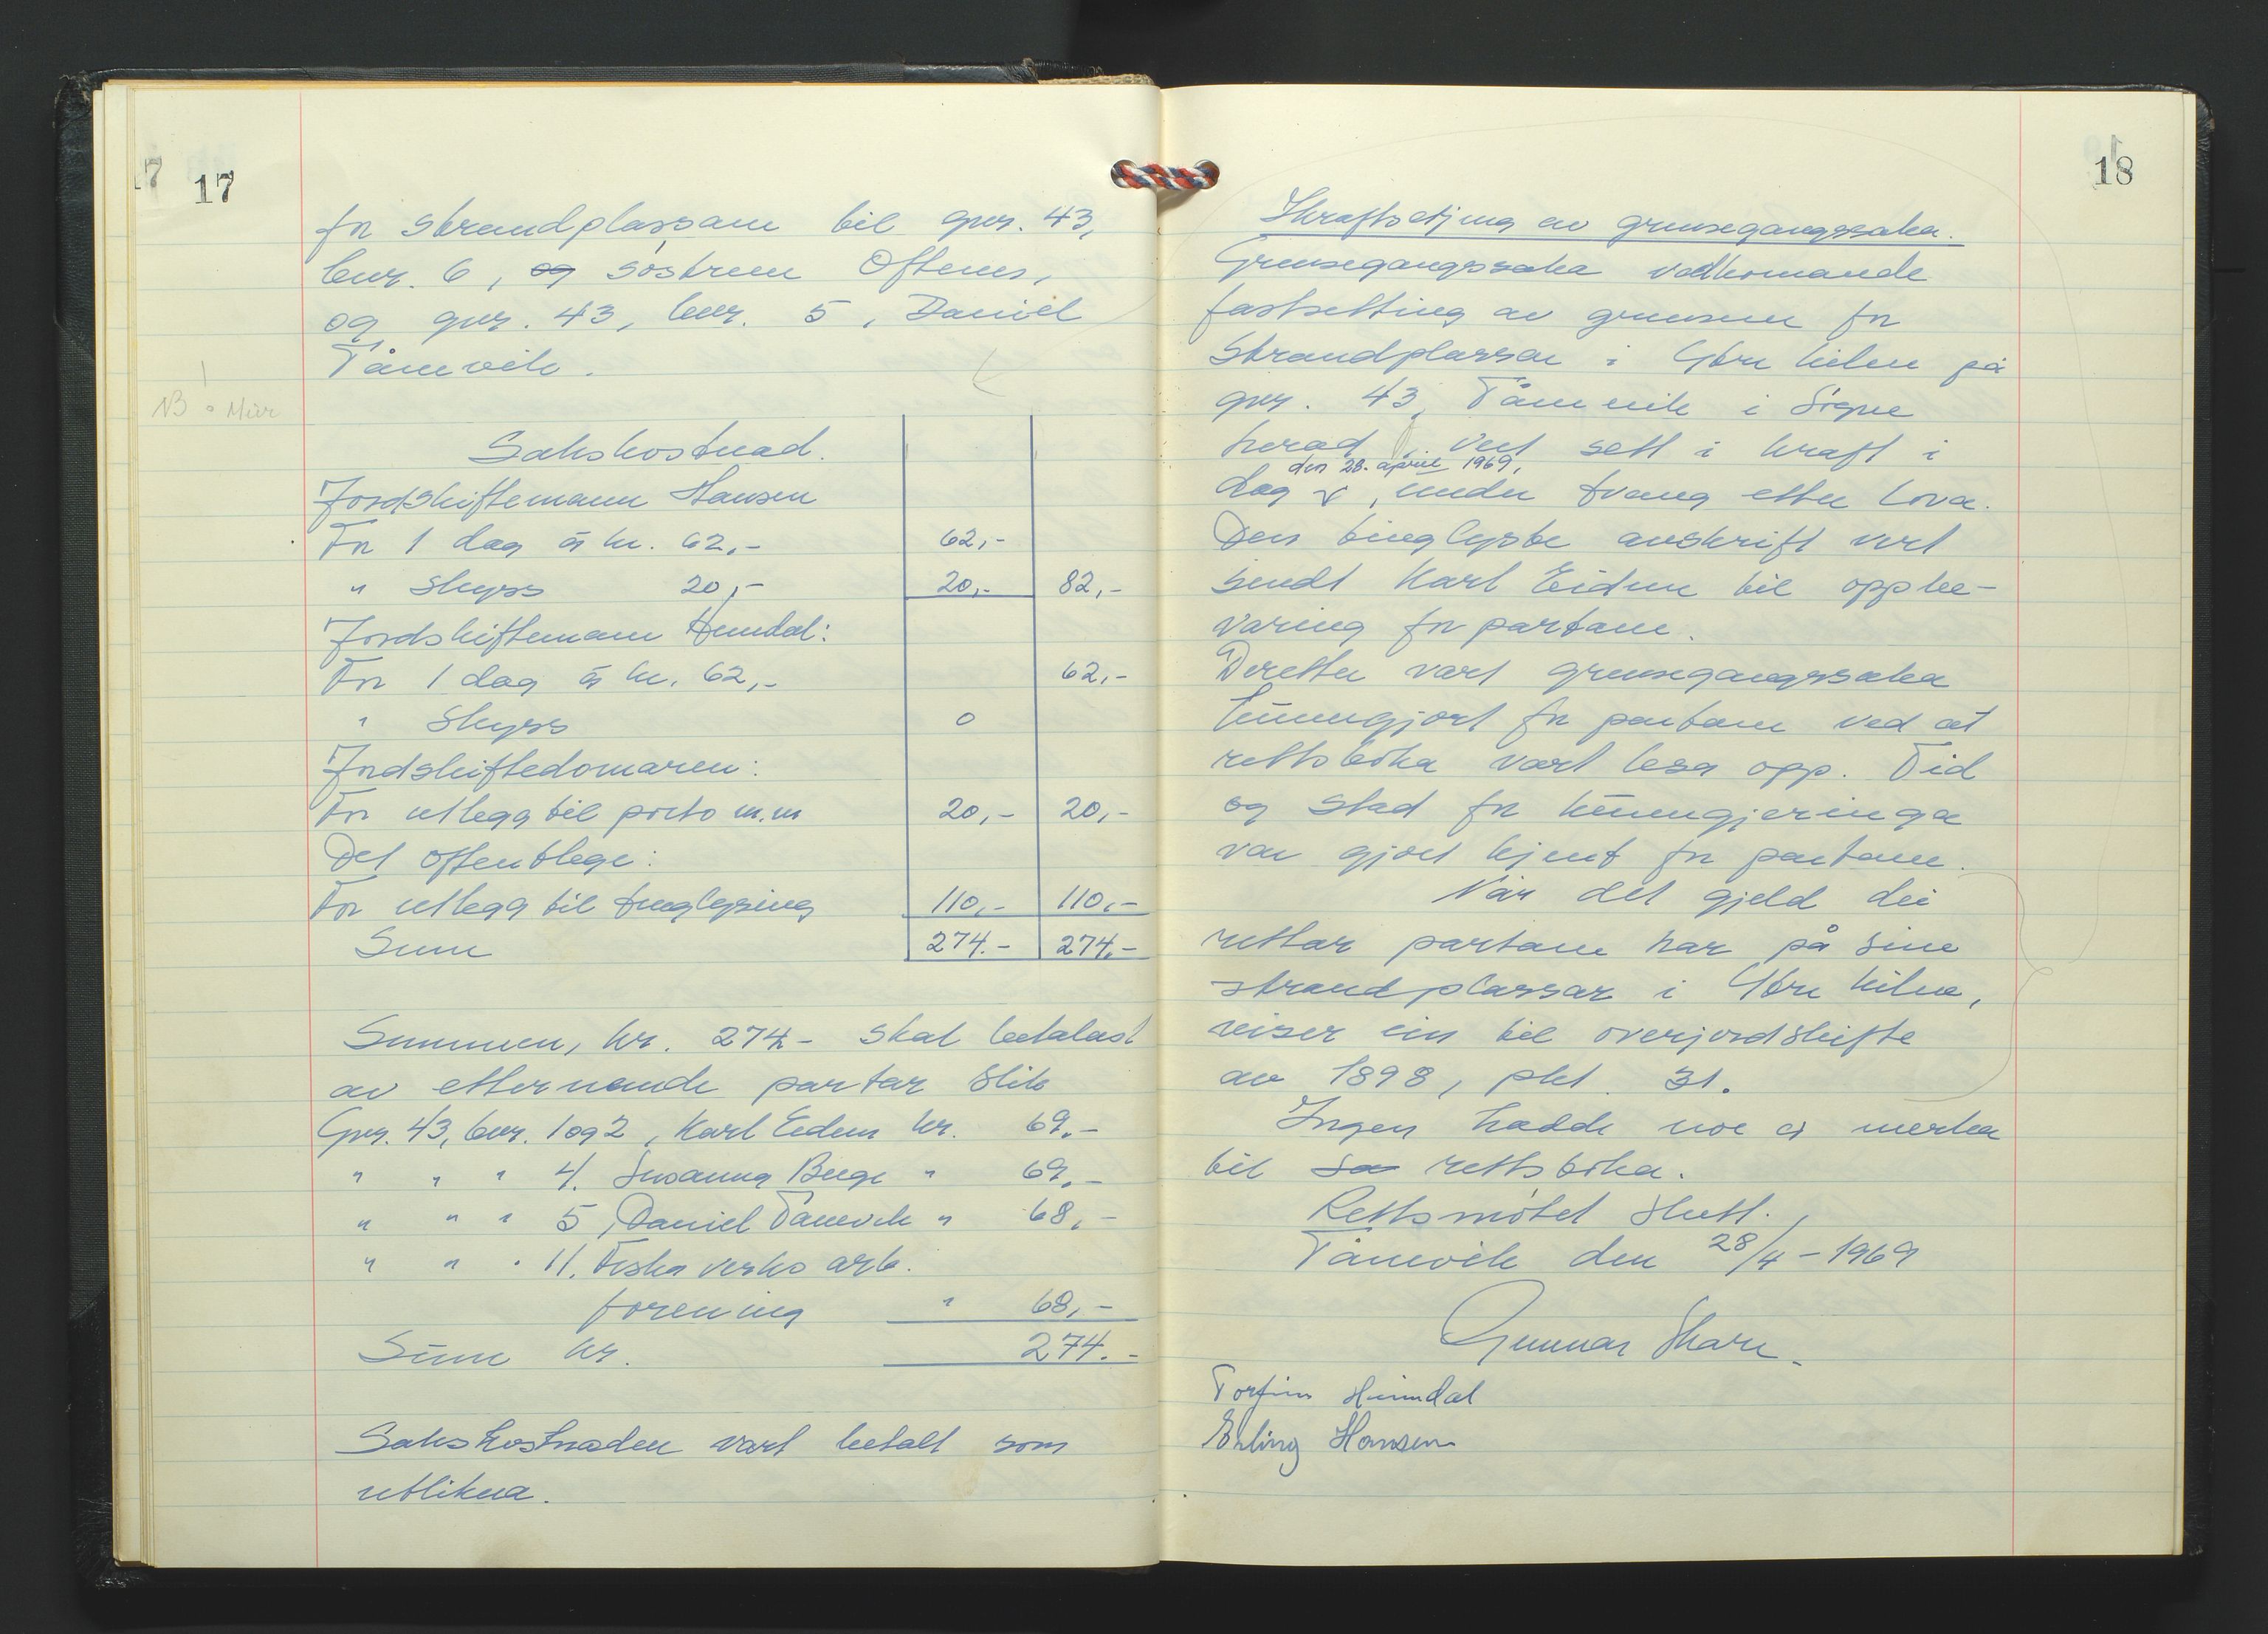 17
for strandplassane til gnr. 43,
bnr. 6, og søstrene Oftenes,
og gnr. 43, bnr. 5, Daniel
Tånevik.
NB
Sakskostnad.
Jordskiftemann Hansen
For 1 dag á kr. 62,- 62,-
" skyss 20,- 20,- 82,-
Jordskiftemann Heimdal:
For 1 dag á kr. 62,- 62,-
" Skyss 0
Jordskiftedomaren:
For utlegg til porto m.m 20,- 20,-
Det offentlege:
For utlegg til tinglysing 110,- 110,-
Sum 274.- 274.-
Summen, kr. 274,- skal betalast
av etternemnde partar slik
Gnr. 43, bnr. 1 og 2, Karl Eidem kr. 69,-
" " " 4. Susanna Berge " 69,-
" " " 5, Daniel Tånevik " 68,-
" " " 11. Fiskå verks arb.
forening " 68,-
Sum kr. 274.-
Sakskostnaden vart betalt som
utlikna.
18
Ikraftsetjing av grensegangssaka.
Grensegangssaka vedkomande
fastsetting av grensene for
strandplassar i Ytre kilen på
gnr. 43, Tånevik i Søgne
herad, vert sett i kraft i
den 28. april 1969,
dag, under tvang etter lova.
Den tinglyste avskrift vert
sendt Karl Eidem til oppbe-
varing for partane.
Deretter vart grensegangssaka
kunngjort for partane ved at
rettsboka vart lesa opp. Tid
og stad for kunngjeringa
var gjort kjent for partane.
Når det gjeld dei
rettar partane har på sine
strandplassar i Ytre kilen,
viser ein til overjordskifte
av 1898, pkt. 31.
Ingen hadde noe å merka
til sa rettsboka.
Rettsmøtet slutt.
Tånevik den 28/4-1969
Gunnar Skare.
Torfinn Heimdal
Erling Hansen